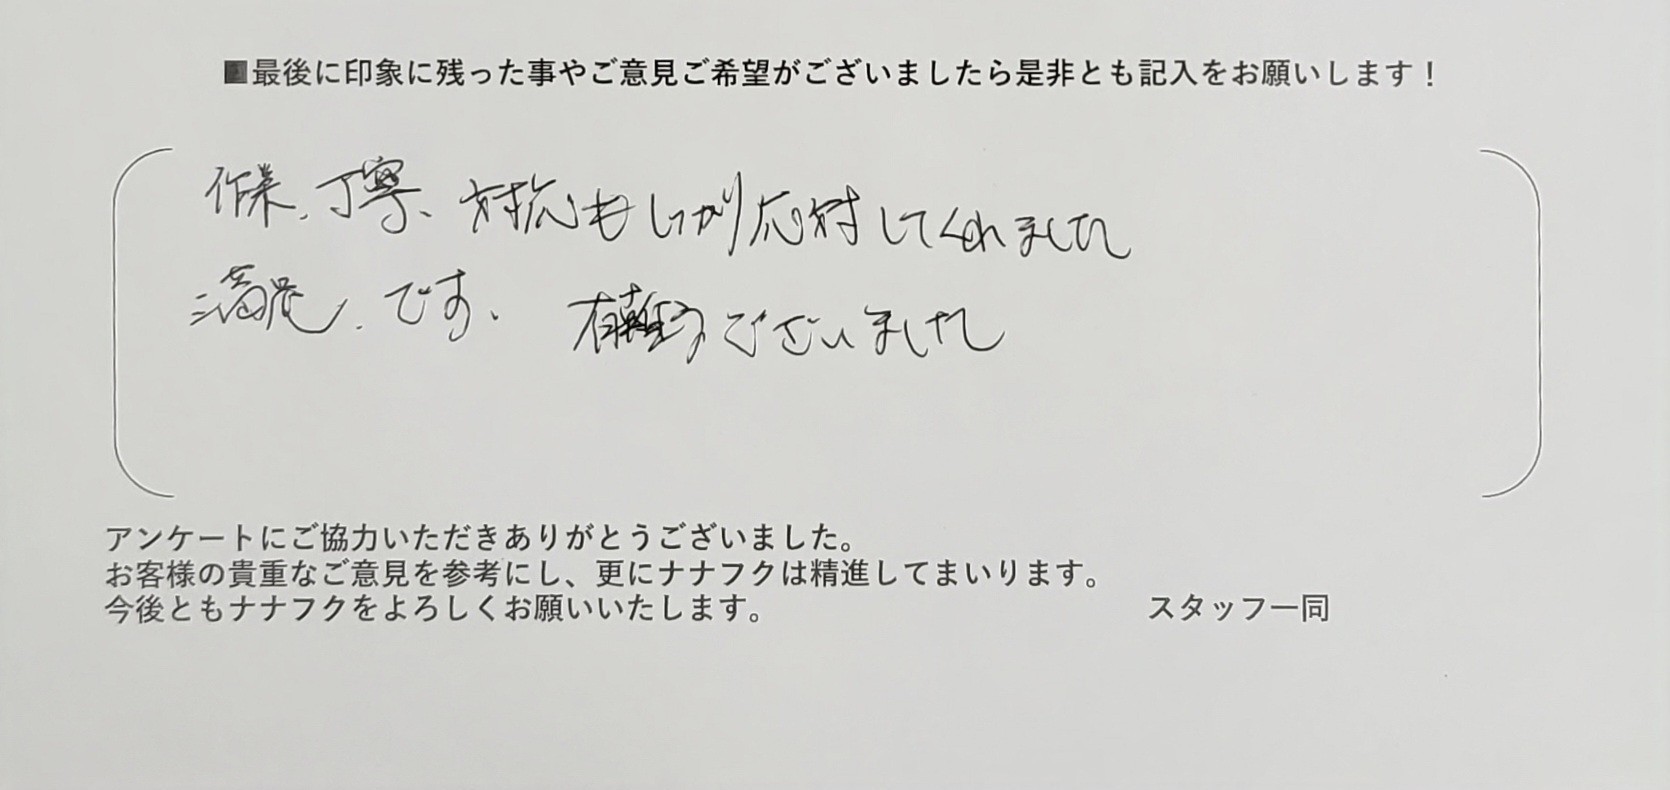 ■最後に印象に残った事やご意見ご希望がございましたら是非とも記入をお願いします！
作業、丁寧、対応もしっかり応対してくれました
満足、です、 有難うございました
アンケートにご協力いただきありがとうございました。
お客様の貴重なご意見を参考にし、更にナナフクは精進してまいります。
今後ともナナフクをよろしくお願いいたします。 スタッフ一同